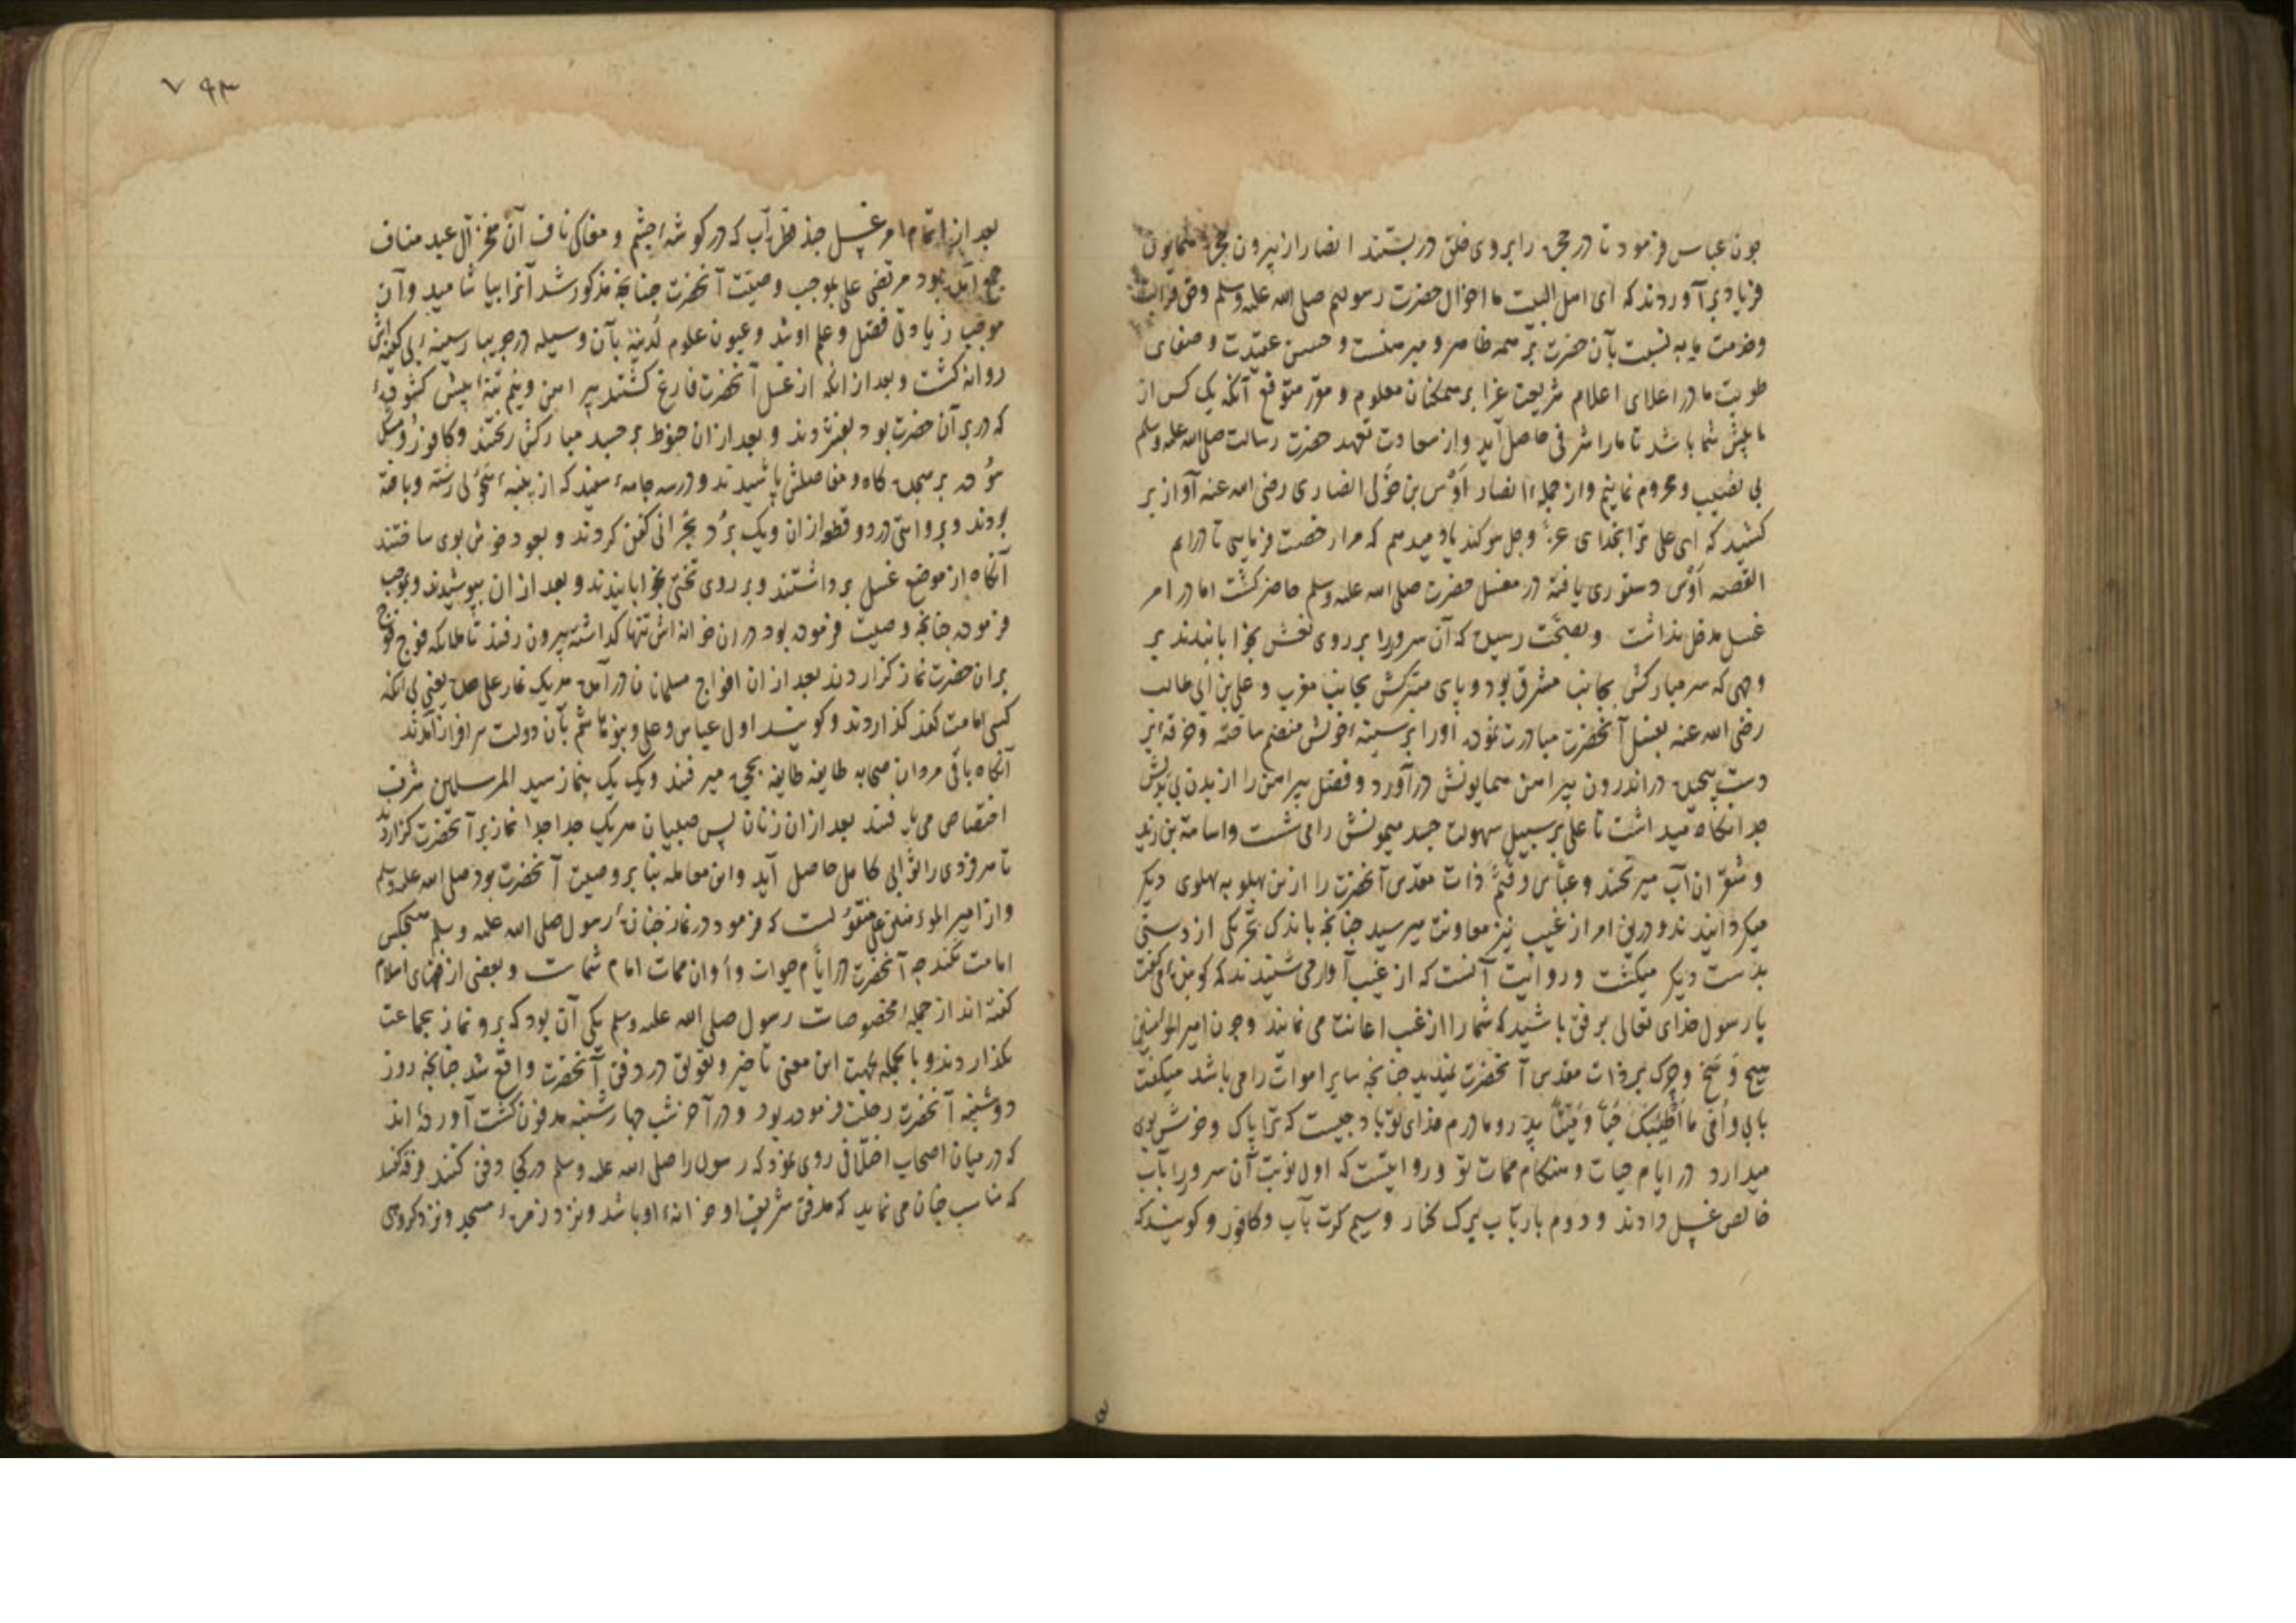 چون عباس فرمود تا در حجره را بروی خلق در بستند انصار از بیرون حجره همایون
فریاد برآوردند که ای اهل البیت ما اخوال حضرت رسولیم صلی الله علیه وسلم وحق قرابت
وخدمت ما به نسبت بآن حضرت بر همه ظاهر و مبرهنست و حسن عقیدت و صفای
طویت ما در اعلای اعلام شریعت غرا بر همکنان معلوم و مقرر متوقع آنکه یک کس از
ما پیش شما باشد تا ما را شرفی حاصل آید و از سعادت تعهد حضرت رسالت صلی الله علیه وسلم
بی نصیب و محروم نمانیم و از جمله انصار اوس بن خولی انصاری رضی الله عنه آواز بر
کشید که ای علی ترا بخدای عز وجل سوکند یاد میدهم که مرا رخصت فرمایی تا درایم
القصه اوس دستوری یافته در مغسل حضرت صلی الله علیه وسلم حاضر کشت اما در امر
غسل مدخل نداشت و بصحت رسیده که آن سرور را بر روی نعش بخوابانیدند بر
وجهی که سر مبارکش بجانب مشرق بود و پای متبرکش بجانب مغرب و علی بن ابی طالب
رضی الله عنه بغسل آنحضرت مبادرت نموده او را بر سینه خویش منضم ساخته و خرقه بر
دست پیچیده در اندرون پیراهن همایونش درآورد و فضل پیراهن را از بدن
جدا نکاه میداشت تا علی بر سبیل سهولت جسد میمونش را می شست و اسامة بن زید
و شقران آب میریختند و عباس و قثم ذات مقدس آنحضرت را ازین پهلو به پهلوی دیکر
میکردانیدند و درین امر از غیب نیز معاونت میرسید چنانچه باندک تحریکی از دستی
بدست دیکر میکشت و روایت آنست که از غیب آواز می شنیدند که کوینده می کفت
با رسول خدای تعالی برفق باشید که شما را از غیب اعانت می نمایند و چون امیر المؤمنین
هیچ وسخ و چرک بر ذات مقدس آنحضرت ندید چنانچه سایر اموات را می باشد میکفت
بابی و أمی ما أطیبک حیا و میتا پدر و مادرم فدای تو باد چیست که ترا پاک و خوش بوی
میدارد در ایام حیات و هنکام ممات تو و روایتست که اول نوبت آن سرور را بآب
خالص غسل دادند و دوم بار بآب برک کنار و سیم کرت بآب و کافور و کویند که
۷۹۳
بعد از اتمام امر غسل چند قطره آب که در کوشه چشم و مغاکی ناف آن مفخر آل عبد مناف
جمع آمده بود مرتضی علی بموجب وصیت آنحضرت چنانچه مذکور شد آنرا بیاشامید و آن
موجب زیادتی فضل و علم او شد و عیون علوم لدنیه بآن وسیله در جویبار سینه
روانه کشت و بعد از انکه از غسل آنحضرت فارغ کشتند پیراهن
که در بر آن حضرت بود بفشردند و بعد از ان حنوط بر جسد مبارکش ریختند و کافور و مشک
سوده بر سجده کاه و مفاصلش پاشیدند و در سه جامه سفید که از پنبه سحولی رشته و بافته
بودند و بروایتی در دو قطعه ازان و یک برد بحرانی کفن کردند و بعود خوش بوی ساختند
آنکاه از موضع غسل برداشتند و بر روی تختی بخوابانیدند و بعد از ان بپوشیدند و بموجب
فرموده چنانچه وصیت فرموده بود دران خانه اش تنها کذاشته بیرون رفتند تا ملایکه فوج فوج
بران حضرت نماز کزاردند بعد از ان افواج مسلمانان درآمده هر یک نماز علی حده یعنی بی آنکه
کسی امامت کند کذاردند و کویند اول عباس و علی و بنو هاشم بآن دولت سرافراز آمدند
آنکاه باقی مردان صحابه طایفه طایفه بحجره میرفتند و یک یک بنماز سید المرسلین شرف
اختصاص می یافتند بعد از ان زنان پس صبیان هر یک جدا جدا نماز بر آنحضرت کزاردند
تا هر فردی را ثوابی کامل حاصل آید و این معامله بنا بر وصیت آنحضرت بود صلی الله علیه وسلم
و از امیر المؤمنین علی منقولست که فرمود در نماز جنازه رسول صلی الله علیه وسلم هیچکس
امامت نکند چه آنحضرت در ایام حیوات و أوان ممات امام شماست و بعضی از فقهای اسلام
کفته اند از جمله مخصوصات رسول صلی الله علیه وسلم یکی آن بود که برو نماز بجماعت
نکذاردند و بالجمله بجهت این معنی تاخیر و تعویق در دفن آنحضرت واقع شد چنانچه روز
دوشنبه آنحضرت رحلت فرموده بود و در آخر شب چهارشنبه مدفون کشت آورده اند
که در میان اصحاب اختلافی روی نمود که رسول را صلی الله علیه وسلم در کجا دفن کنند فرقه کفتند
که مناسب چنان می نماید که مدفن شریف او خانه او باشد و نزد زمره مسجد و نزد کروهی